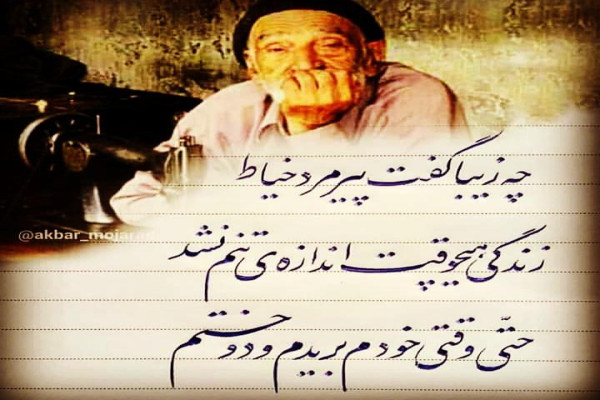 چه زیبا گفت پیرمرد خیاط
@akbar_mojarad
زندگی هیچوقت اندازه‌ی تنم نشد
حتّی وقتی خودم بریدم و دوختم